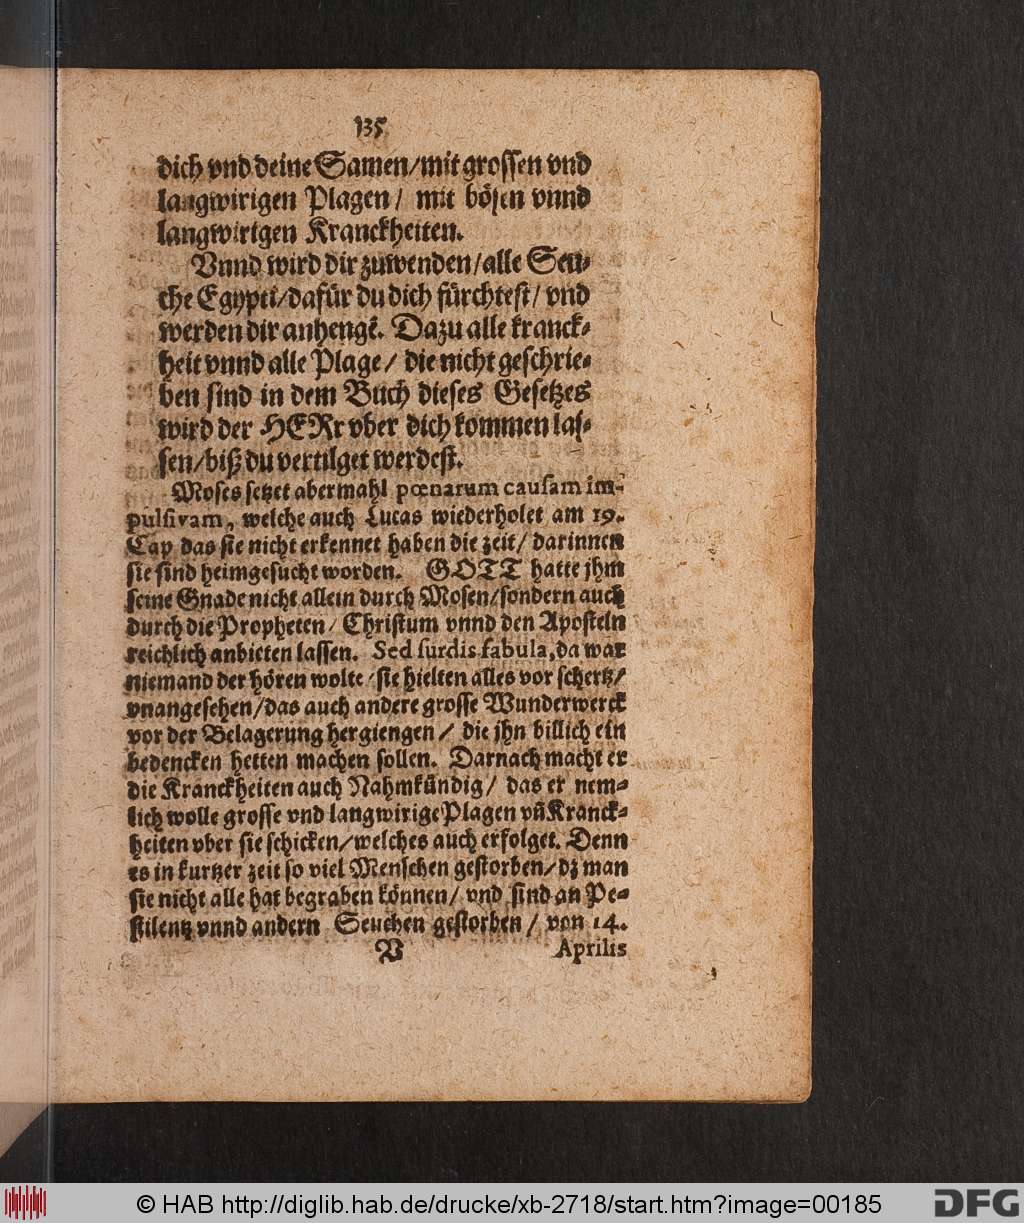 135
dich vnd deine Samen/mit grossen vnd
langwirigen Plagen/ mit bösen vnnd
langwirigen Kranckheiten.
Vnnd wird dir zuwenden/alle Seu-
che Egypti/dafür du dich fürchtest/ vnd
werden dir anhengē. Dazu alle kranck-
heit vnnd alle Plage/ die nicht geschrie-
ben sind in dem Buch dieses Gesetzes
wird der HERr vber dich kommen las-
sen/biß du vertilget werdest.
Moses setzet abermahl pœnarum causam im-
pulsivam, welche auch Lucas wiederholet am 19.
Cap das sie nicht erkennet haben die zeit/ darinnen
sie sind heimgesucht worden. GOTT hatte jhm
seine Gnade nicht allein durch Mosen/sondern auch
durch die Propheten/ Christum vnnd den Aposteln
reichlich anbieten lassen. Sed surdis fabula, da war
niemand der hören wolte/sie hielten alles vor schertz/
vnangesehen/das auch andere grosse Wunderwerck
vor der Belagerung hergiengen/ die jhn billich ein
bedencken hetten machen sollen. Darnach macht er
die Kranckheiten auch Nahmkündig/ das er nem-
lich wolle grosse vnd langwirige Plagen vn̄ Kranck-
heiten vber sie schicken/welches auch erfolget. Denn
es in kurtzer zeit so viel Menschen gestorben/dz man
sie nicht alle hat begraben können/ vnd sind an Pe-
stilentz vnnd andern Seuchen gestorben/ von 14.
V Aprilis
© HAB http://diglib.hab.de/drucke/xb-2718/start.htm?image=00185
DFG